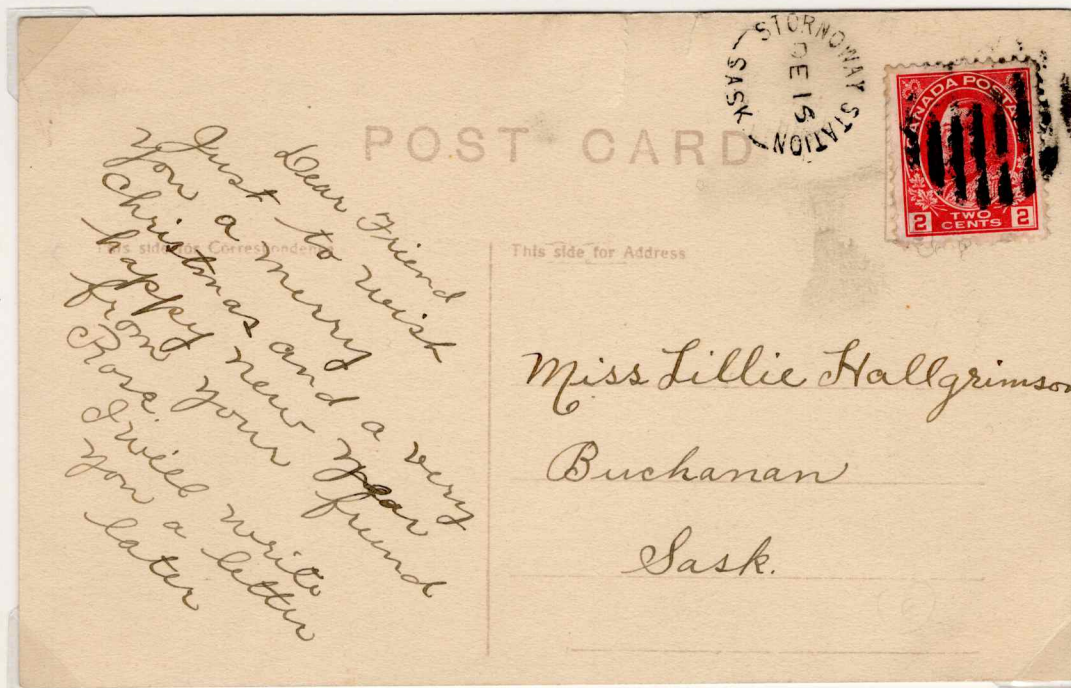 POST CARD
STORNOWAY STATION
SASK
DE 15
CANADA POSTAGE
2 TWO CENTS 2
This side for Correspondence
This side for Address
Dear Friend
Just to wish
you a merry
Christmas and a very
happy new year
from your friend
Rose.
I will write
you a letter
later
Miss Lillie Hallgrimson
Buchanan
Sask.
6